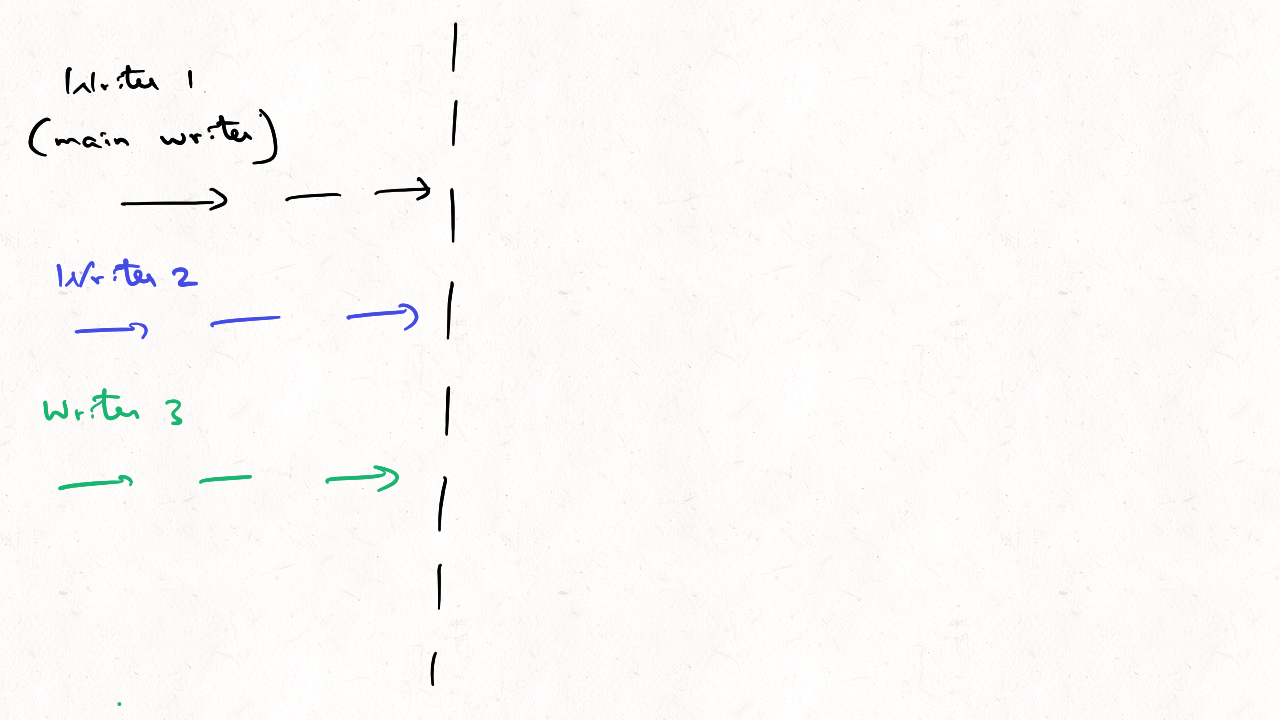 Writer 1
(main writer)
Writer 2
Writer 3